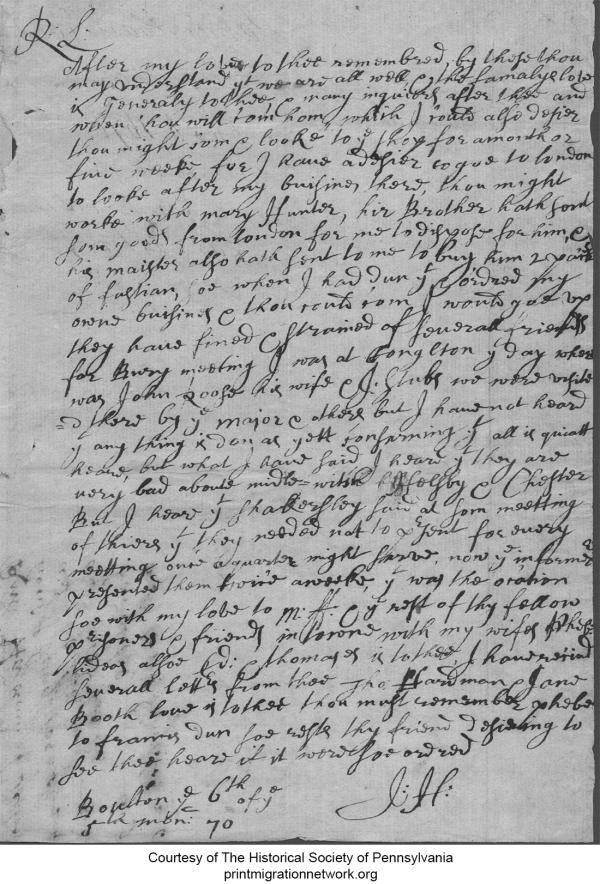 R: L:
After my love to thee remembred, by these thou
may understand yt we are all well & the familys love
is Generaly to thee & many inquiers after thee and
when thou will com hom, which I could also desier
thou might com & looke to ye shop for a month or
five weeke for I have a desier to goe to london
to looke after my buisines there, thou might
worke with mary Hunter, hir Brother hath sent
som goods from london for me to dispose for him, &
his maister also hath sent to me to buy him 2 packs
of fustian, soe when I had dun yt & ordred my
owne buisines & thou could com I would goe up
they have fined & strained of severall friends
for Bury meeting I was at Conglton yt day where
was John & his wife & J: Stubs we were
d there by ye major & others but I have not heard
yt any thing is don as yett consarning yt all is quiatt
heare, but what I have said I heare yt they are
very bad about midle=witch & Chester
But I heare yt Shakersley said at som meetting
of thiers yt they needed not to prsent for every
meetting once a quarter might sarve, now ye informer
presented them twice a weeke yt was the ocation
soe with my love to M: ff: & ye rest of thy fellow
prisoners & friends in with my wifes
alsoe Ed: & thomases is to thee, I have
severall letts from thee Tho Hardman & Jane
Booth love is to thee thou must remember phebe
to francis dun soe rests thy friend desiering to
see thee heare if it were soe ordred
J: H:
Boulton ye 6th of ye
mon: 70
Courtesy of The Historical Society of Pennsylvania
printmigrationnetwork.org